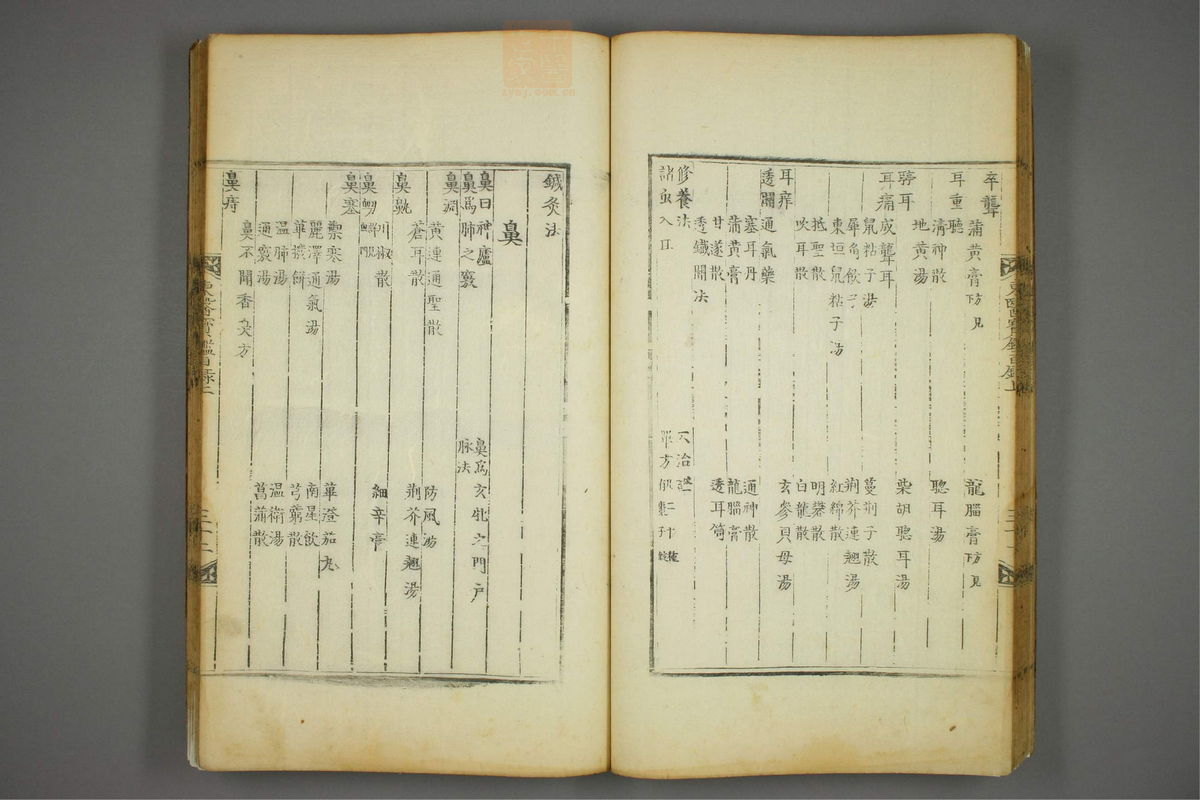 卒聾
蒲黃膏 方見下
龍腦膏 方見下
耳重聽
清神散
聰耳湯
地黃湯
聤耳
柴胡聰耳湯
耳痛成聾耳
鼠粘子湯
蔓荊子散
犀角飮子
荊芥連翹湯
東垣鼠粘子湯
紅綿散
抵聖散
明礬散
吹耳散
白龍散
耳痒
玄參貝母湯
透關
通氣藥
塞耳丹
通神散
蒲黃膏
龍腦膏
甘遂散
透耳筒
透鐵關法
修養法
諸虫入耳
單方
東醫寶鑑目錄上
鍼灸法
鼻
鼻曰神廬
鼻爲玄牝之門戶
鼻爲肺之竅
脉法
鼻淵
黃連通聖散
防風湯
蒼耳散
荊芥連翹湯
鼻鼽
川椒散
細辛膏
鼻衄
鼻塞
禦寒湯
蓽澄茄丸
麗澤通氣湯
南星飮
蓽撥餠
芎藭散
溫肺湯
溫衛湯
通竅湯
菖蒲散
鼻不聞香臭方
鼻痔
東醫寶鑑目錄上
zysj.com.cn